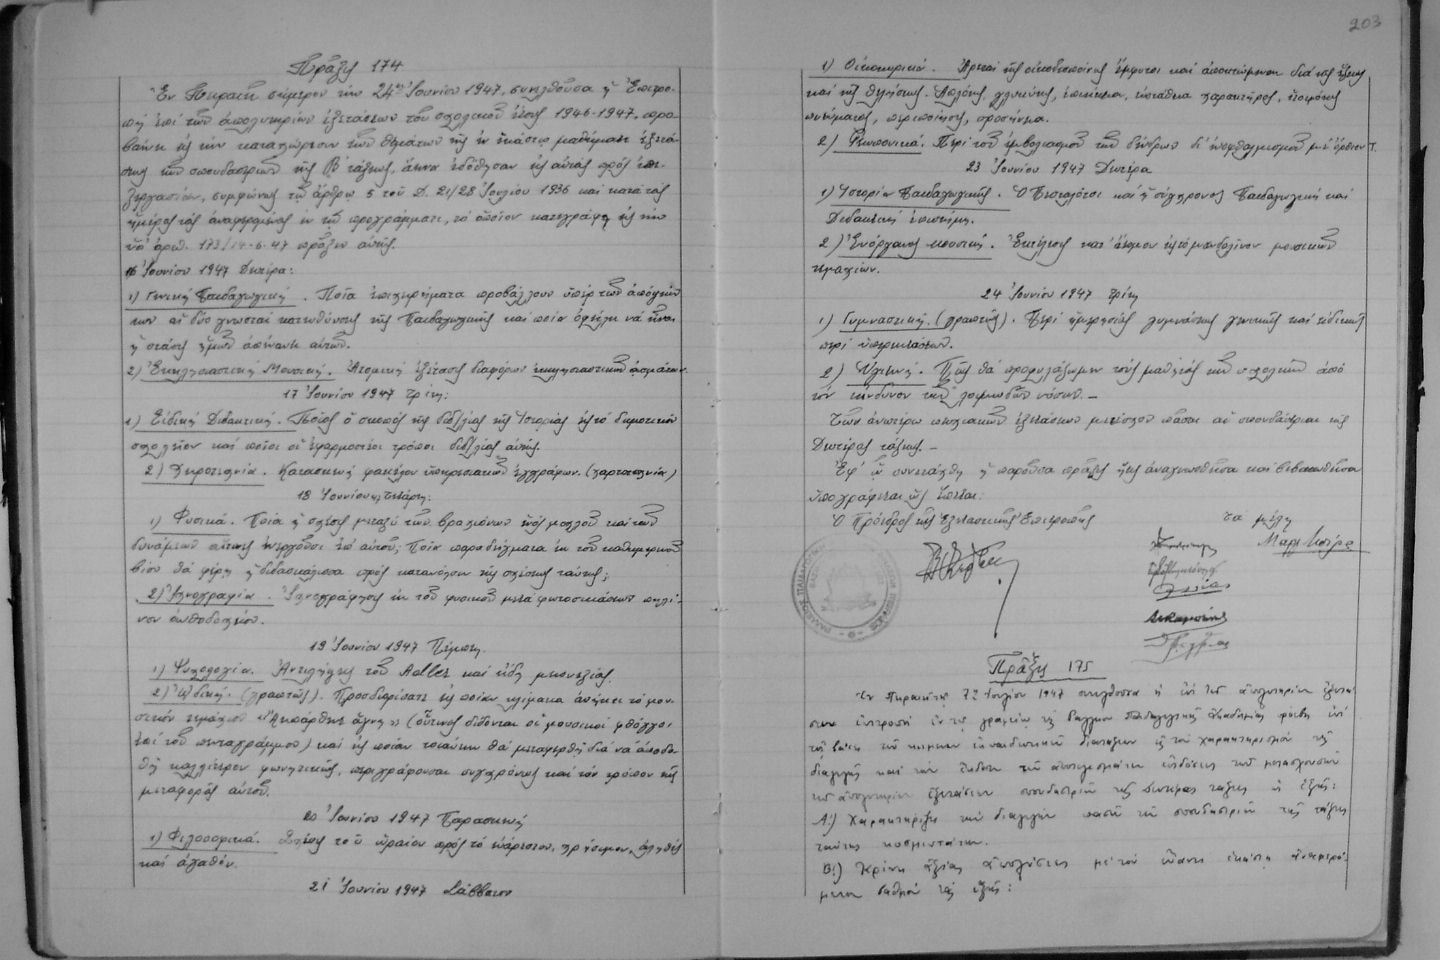 Πρᾶξις 174
Ἐν Πειραιεῖ σήμερον τὴν 24ην Ἰουνίου 1947, συνελθοῦσα ἡ Ἐπιτρο-
πὴ ἐπὶ τῶν ἀπολυτηρίων ἐξετάσεων τοῦ σχολικοῦ ἔτους 1946-1947, προ-
βαίνει εἰς τὴν καταχώρισιν τῶν θεμάτων τῆς ἐν ἑκάστῳ μαθήματι ἐξετά-
σεως τῶν σπουδαστριῶν τῆς Β' τάξεως, ἅτινα ἐδόθησαν εἰς αὐτὰς πρὸς ἐπε-
ξεργασίαν, συμφώνως τῷ ἄρθρῳ 5 τοῦ Δ. 21/28 Ἰουλίου 1936 καὶ κατὰ τὰς
ἡμέρας τὰς ἀναφερομένας ἐν τῷ προγράμματι, τὸ ὁποῖον κατεγράφη εἰς τὴν
ὑπ' ἀριθ. 173/14-6-47 πρᾶξιν αὐτῆς.
16 Ἰουνίου 1947 Δευτέρα:
1) Γενικὴ Παιδαγωγική. Ποῖα ἐπιχειρήματα προβάλλουν ὑπὲρ τῶν ἀπόψεών
των αἱ δύο γνωσταὶ κατευθύνσεις τῆς Παιδαγωγικῆς καὶ ποία ὀφείλει νὰ εἶναι
ἡ στάσις ἡμῶν ἀπέναντι αὐτῶν.
2) Ἐκκλησιαστικὴ Μουσική. Ἀτομικὴ ἐξέτασις διαφόρων ἐκκλησιαστικῶν ᾀσμάτων.
17 Ἰουνίου 1947 Τρίτη:
1) Εἰδικὴ Διδακτική. Ποῖος ὁ σκοπὸς τῆς διδ/λίας τῆς Ἱστορίας εἰς τὸ δημοτικὸν
σχολεῖον καὶ ποῖοι οἱ ἐφαρμοστέοι τρόποι διδ/λίας αὐτῆς.
2) Χειροτεχνία. Κατασκευὴ φακέλου ὑπηρεσιακῶν ἐγγράφων. (χαρτοτεχνία)
18 Ἰουνίου Τετάρτη:
1) Φυσικά. Ποία ἡ σχέσις μεταξὺ τῶν βραχιόνων ἑνὸς μοχλοῦ καὶ τῶν
δυνάμεων αἵτινες ἐνεργοῦσι ἐπ' αὐτοῦ; Ποῖα παραδείγματα ἐκ τοῦ καθημερινοῦ
βίου θὰ φέρῃ ἡ διδασκάλισσα πρὸς κατανόησιν τῆς σχέσεως ταύτης;
2) Ἰχνογραφία. Ἰχνογράφησις ἐκ τοῦ φυσικοῦ μετὰ φωτοσκιάσεων πηλί-
νου ἀνθοδοχείου.
19 Ἰουνίου 1947 Πέμπτη.
1) Ψυχολογία. Ἀντιλήψεις τοῦ Adler καὶ εἴδη μειονεξίας.
2) ᾨδική. (γραπτῶς). Προσδιορίσατε εἰς ποίαν κλίμακα ἀνήκει τὸ μου-
σικὸν τεμάχιον «Ἀπάρθητε ἄγνη» (οὕτινος δίδονται οἱ μουσικοὶ φθόγγοι
ἐπὶ τοῦ πενταγράμμου) καὶ εἰς ποίαν τοιαύτην θὰ μεταφερθῇ διὰ νὰ ἀποδο-
θῇ καλλίτερον φωνητικῶς, περιγράφουσαι συγχρόνως καὶ τὸν τρόπον τῆς
μεταφορᾶς αὐτοῦ.
20 Ἰουνίου 1947 Παρασκευή
1) Φιλοσοφικά. Σχέσις τοῦ ὡραίου πρὸς τὸ εὐάρεστον, χρήσιμον, ἀληθὲς
καὶ ἀγαθόν.
21 Ἰουνίου 1947 Σάββατον
203
1) Οἰκοκυρικά. Ἀρεταὶ τῆς οἰκοδεσποίνης ἔμφυτοι καὶ ἀποκτώμεναι διὰ τῆς ἕξεως
καὶ τῆς θελήσεως. Ἁπλότης, γλυκύτης, ἐπιείκεια, εὐστάθεια χαρακτῆρος, ἑτοιμότης
πνεύματος, περιποίησις, προσήνεια.
2) Γεωπονικά. Περὶ τοῦ ἐμβολιασμοῦ τῶν δένδρων δι' ἐνοφθαλμισμοῦ μὲ ὄρθιον Τ.
23 Ἰουνίου 1947 Δευτέρα
1) Ἱστορία Παιδαγωγικῆς. Ὁ Πεσταλότσι καὶ ἡ σύγχρονος Παιδαγωγικὴ καὶ
Διδακτικὴ ἐπιστήμη.
2) Ἐνόργανος μουσική. Ἐκτέλεσις κατ' ἄτομον εἰς τὸ μανδολῖνον μουσικῶν
τεμαχίων.
24 Ἰουνίου 1947 Τρίτη
1) Γυμναστική. (γραπτῶς). Περὶ ἡμερησίας γυμνάσεως γενικῆς καὶ εἰδικῆς
περὶ ὑπερεκτάσεων.
2) Ὑγιεινή. Πῶς θὰ προφυλάξωμεν τοὺς μαθητὰς τῶν σχολείων ἀπὸ
τὸν κίνδυνον τῶν λοιμωδῶν νόσων.—
Τῶν ἀνωτέρω πτυχιακῶν ἐξετάσεων μετέσχον πᾶσαι αἱ σπουδάστριαι τῆς
Δευτέρας τάξεως.—
Ἐφ' ᾧ συνετάχθη ἡ παροῦσα πρᾶξις ἥτις ἀναγνωσθεῖσα καὶ βεβαιωθεῖσα
ὑπογράφεται ὡς ἕπεται:
Ὁ Πρόεδρος τῆς Ἐξεταστικῆς Ἐπιτροπῆς
τὰ μέλη
Πρᾶξις 175
Ἐν Πειραιεῖ τῇ 7ῃ Ἰουλίου 1947 συνελθοῦσα ἡ ἐπὶ τῶν ἀπολυτηρίων ἐξετά-
σεων ἐπιτροπὴ ἐν τῷ γραφείῳ τῆς Ραλλείου Παιδαγωγικῆς Ἀκαδημίας προέβη ἐπὶ
τῇ βάσει τῶν κειμένων ἐκπαιδευτικῶν διατάξεων εἰς τὸν χαρακτηρισμὸν τῆς
διαγωγῆς καὶ τὴν ἔκδοσιν τῶν ἀποτελεσμάτων ἐπιδόσεως τῶν μετασχουσῶν
τῶν ἀπολυτηρίων ἐξετάσεων σπουδαστριῶν τῆς δευτέρας τάξεως ὡς ἑξῆς:
Α.) Χαρακτηρίζει τὴν διαγωγὴν πασῶν τῶν σπουδαστριῶν τῆς τάξεως
ταύτης κοσμιωτάτην.
Β.) Κρίνει ἀξίας ἀπολύσεως μὲ τὸν ἔναντι ἑκάστης ἀναφερό-
μενον βαθμὸν τὰς ἑξῆς: